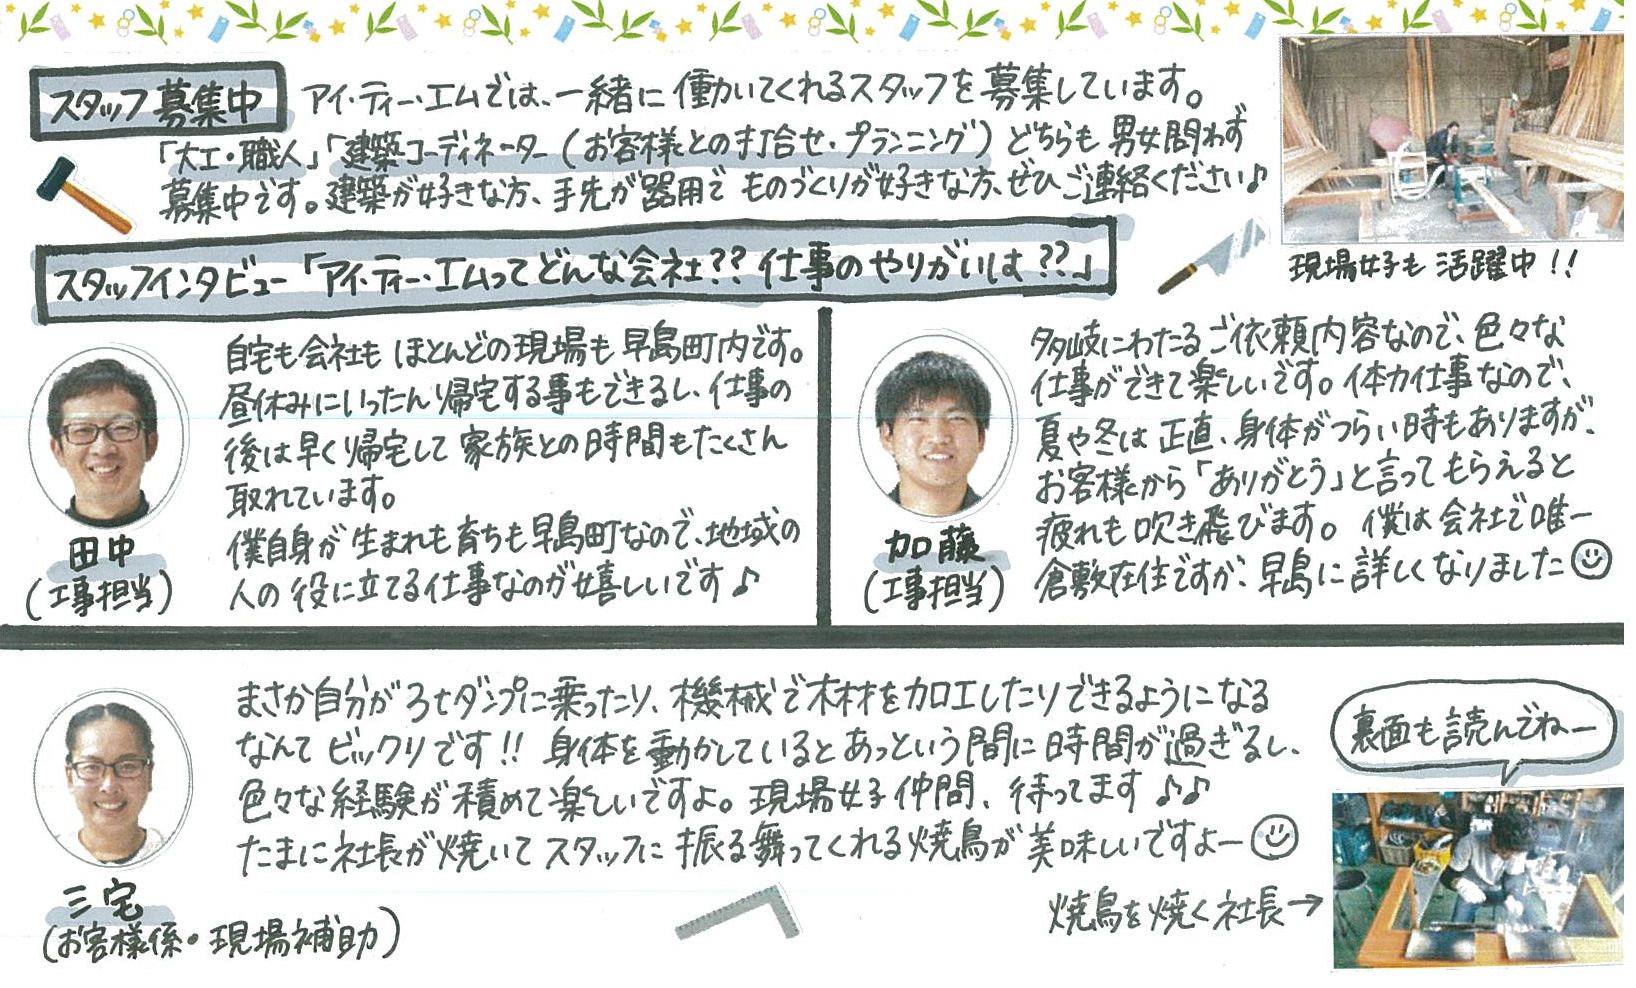 スタッフ募集中
アイ・ティー・エムでは、一緒に働いてくれるスタッフを募集しています。
「大工・職人」「建築コーディネーター(お客様との打合せ・プランニング)どちらも男女問わず
募集中です。建築が好きな方、手先が器用でものづくりが好きな方、ぜひご連絡ください♪
現場女子も活躍中!!
スタッフインタビュー「アイ・ティー・エムってどんな会社??仕事のやりがいは??」
自宅も会社もほとんどの現場も早島町内です。
昼休みにいったん帰宅する事もできるし、仕事の
後は早く帰宅して家族との時間もたくさん
取れています。
僕自身が生まれも育ちも早島町なので、地域の
人の役に立てる仕事なのが嬉しいです♪
田中
(工事担当)
多岐にわたるご依頼内容なので、色々な
仕事ができて楽しいです。体力仕事なので、
夏や冬は正直、身体がつらい時もありますが、
お客様から「ありがとう」と言ってもらえると
疲れも吹き飛びます。僕は会社で唯一
倉敷在住ですが、早島に詳しくなりました☺
加藤
(工事担当)
まさか自分が3tダンプに乗ったり、機械で木材を加工したりできるようになる
なんてビックリです!!身体を動かしているとあっという間に時間が過ぎるし、
色々な経験が積めて楽しいですよ。現場女子仲間、待ってます♪♪
たまに社長が焼いてスタッフに振る舞ってくれる焼鳥が美味しいですよー☺
三宅
(お客様係・現場補助)
裏面も読んでねー
焼鳥を焼く社長→